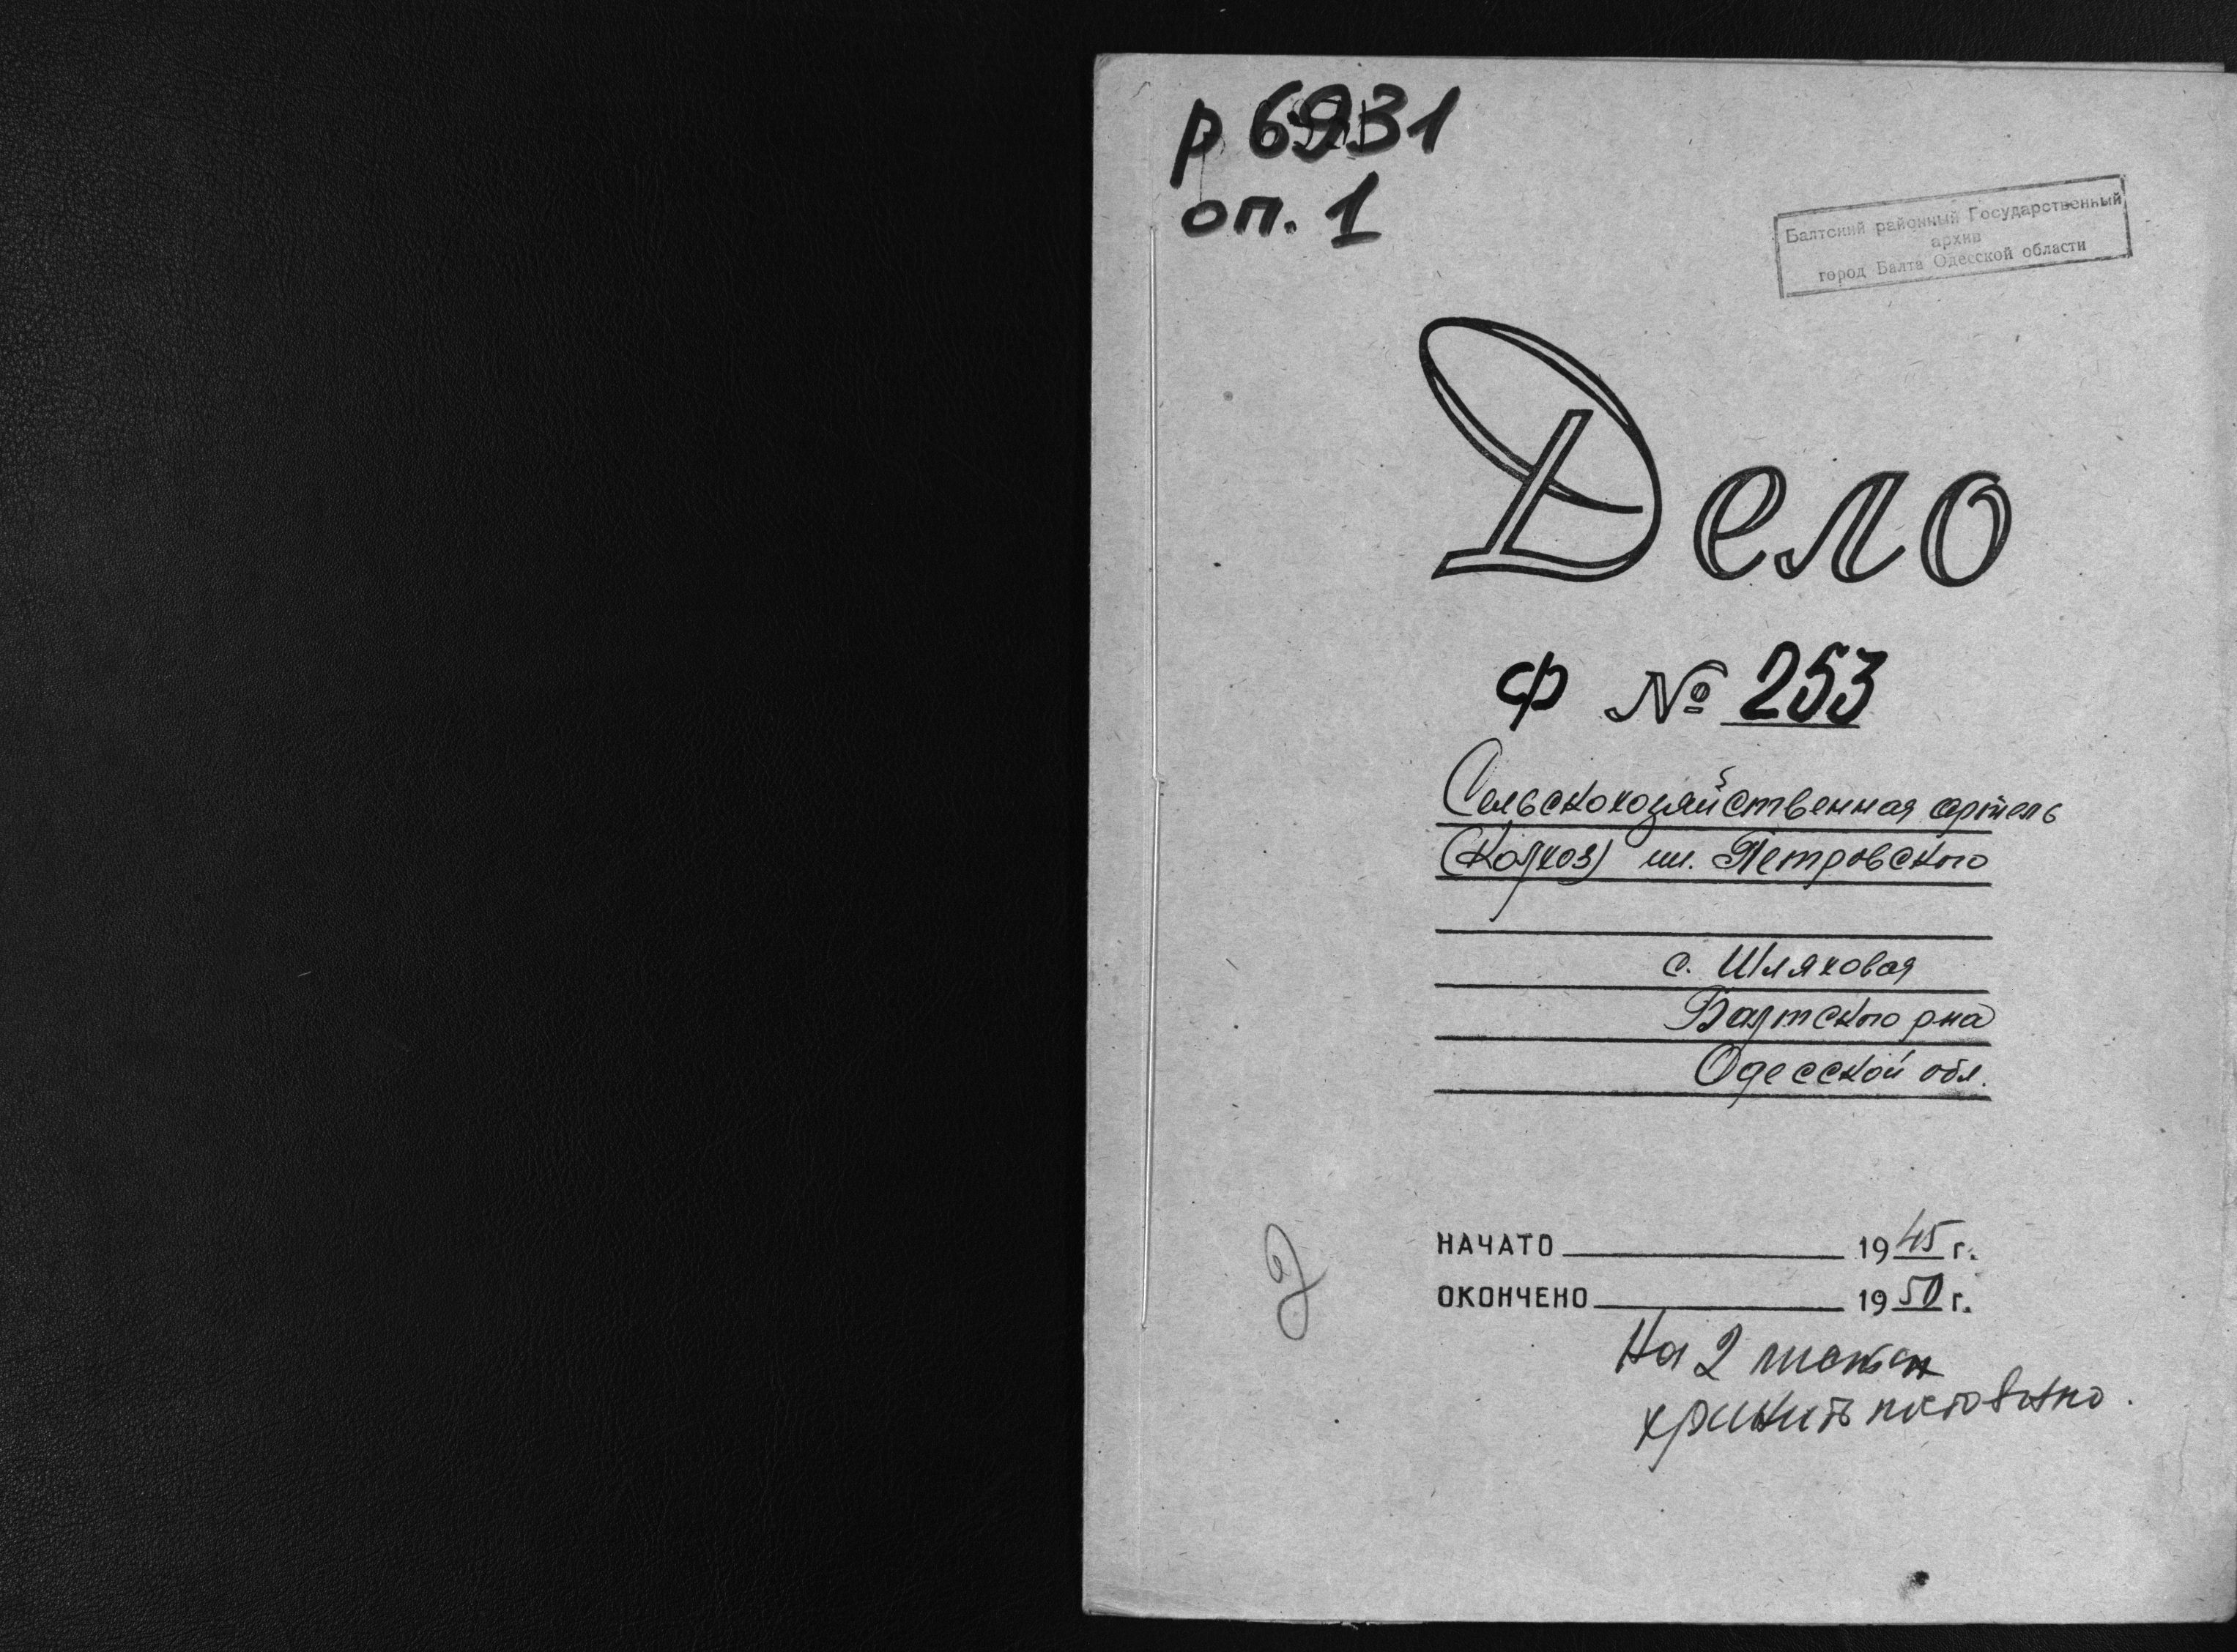 р 6931
оп. 1
Балтский районный Государственный
архив
город Балта Одесской области
Дело
Ф № 253
Сельскохозяйственная артель
(Колхоз) им. Петровского
с. Шляховая
Балтского р-на
Одесской обл.
НАЧАТО 1945 г.
ОКОНЧЕНО 1950 г.
На 2 листах
хранить постоянно.